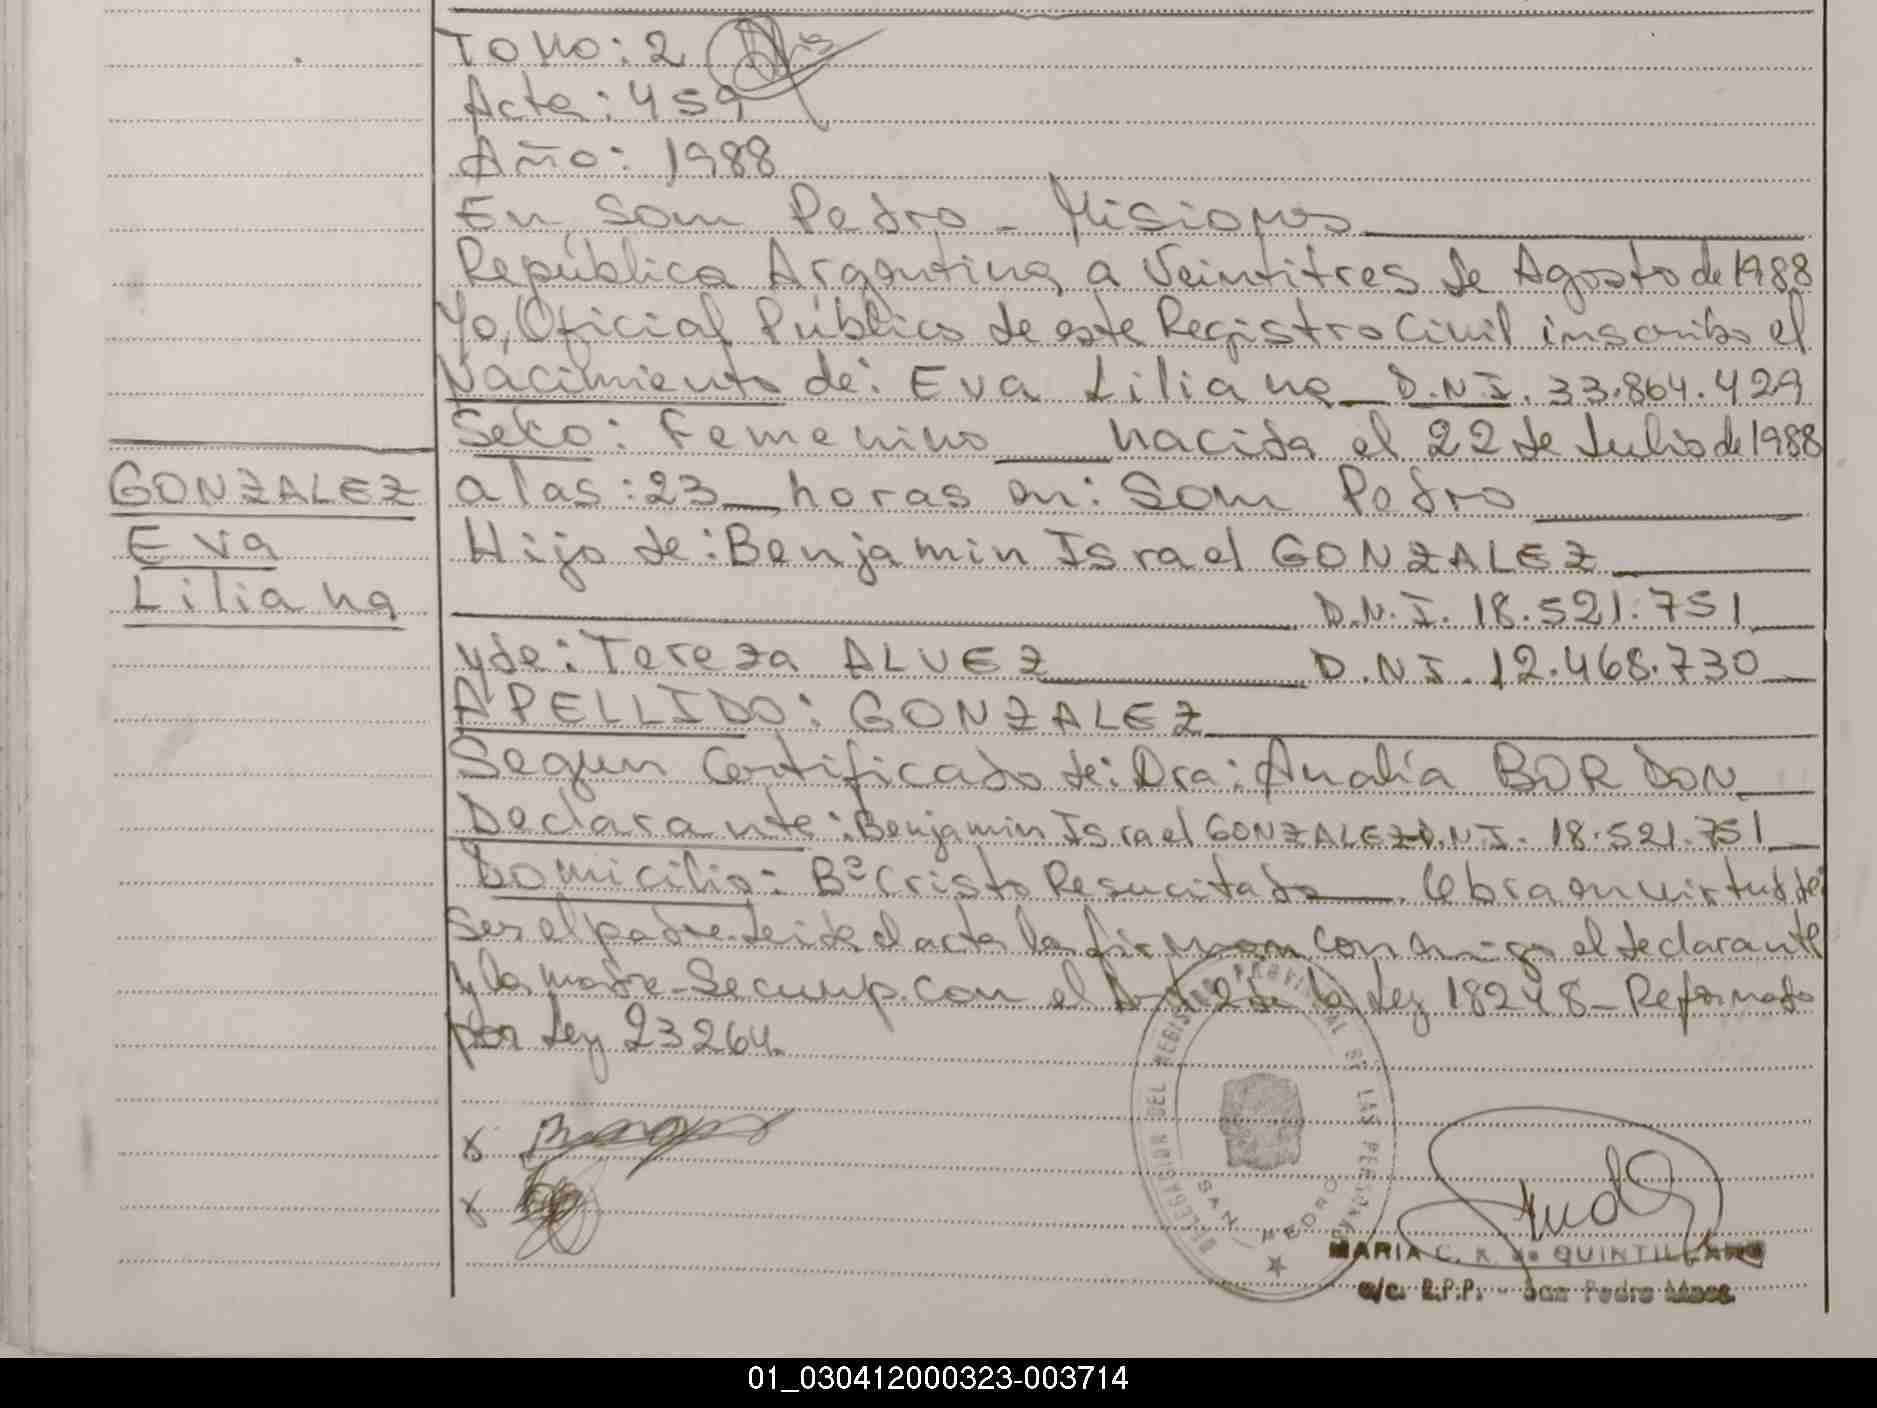 Tomo: 2
Acta: 459
Año: 1988
En San Pedro - Misiones
República Argentina a Veintitres de Agosto de 1988
Yo, Oficial Público de este Registro Civil inscribo el
Nacimiento de: Eva Liliana D.N.I. 33.864.429
Sexo: Femenino nacida el 22 de Julio de 1988
GONZALEZ
Eva
Liliana
a las: 23 horas en: San Pedro
Hijo de: Benjamin Israel GONZALEZ
D.N.I. 18.521.751
y de: Tereza ALVEZ D.N.I. 12.468.730
APELLIDO: GONZALEZ
Segun Certificado de: Dra: Analía BORDON
Declarante: Benjamin Israel GONZALEZ D.N.I. 18.521.751
Domicilio: Bº Cristo Resucitado. Obra en virtud de
ser el padre. Leida el acta la firman conmigo el declarante
y la madre - Se cump. con el Art. 2 de la Ley 18248 - Reformado
por Ley 23264.
DELEGACION DEL REGISTRO PROVINCIAL DE LAS PERSONAS
SAN PEDRO
MARIA C. K. de QUINTILLANO
a/c. R.P.P. - San Pedro Mnes.
01_030412000323-003714